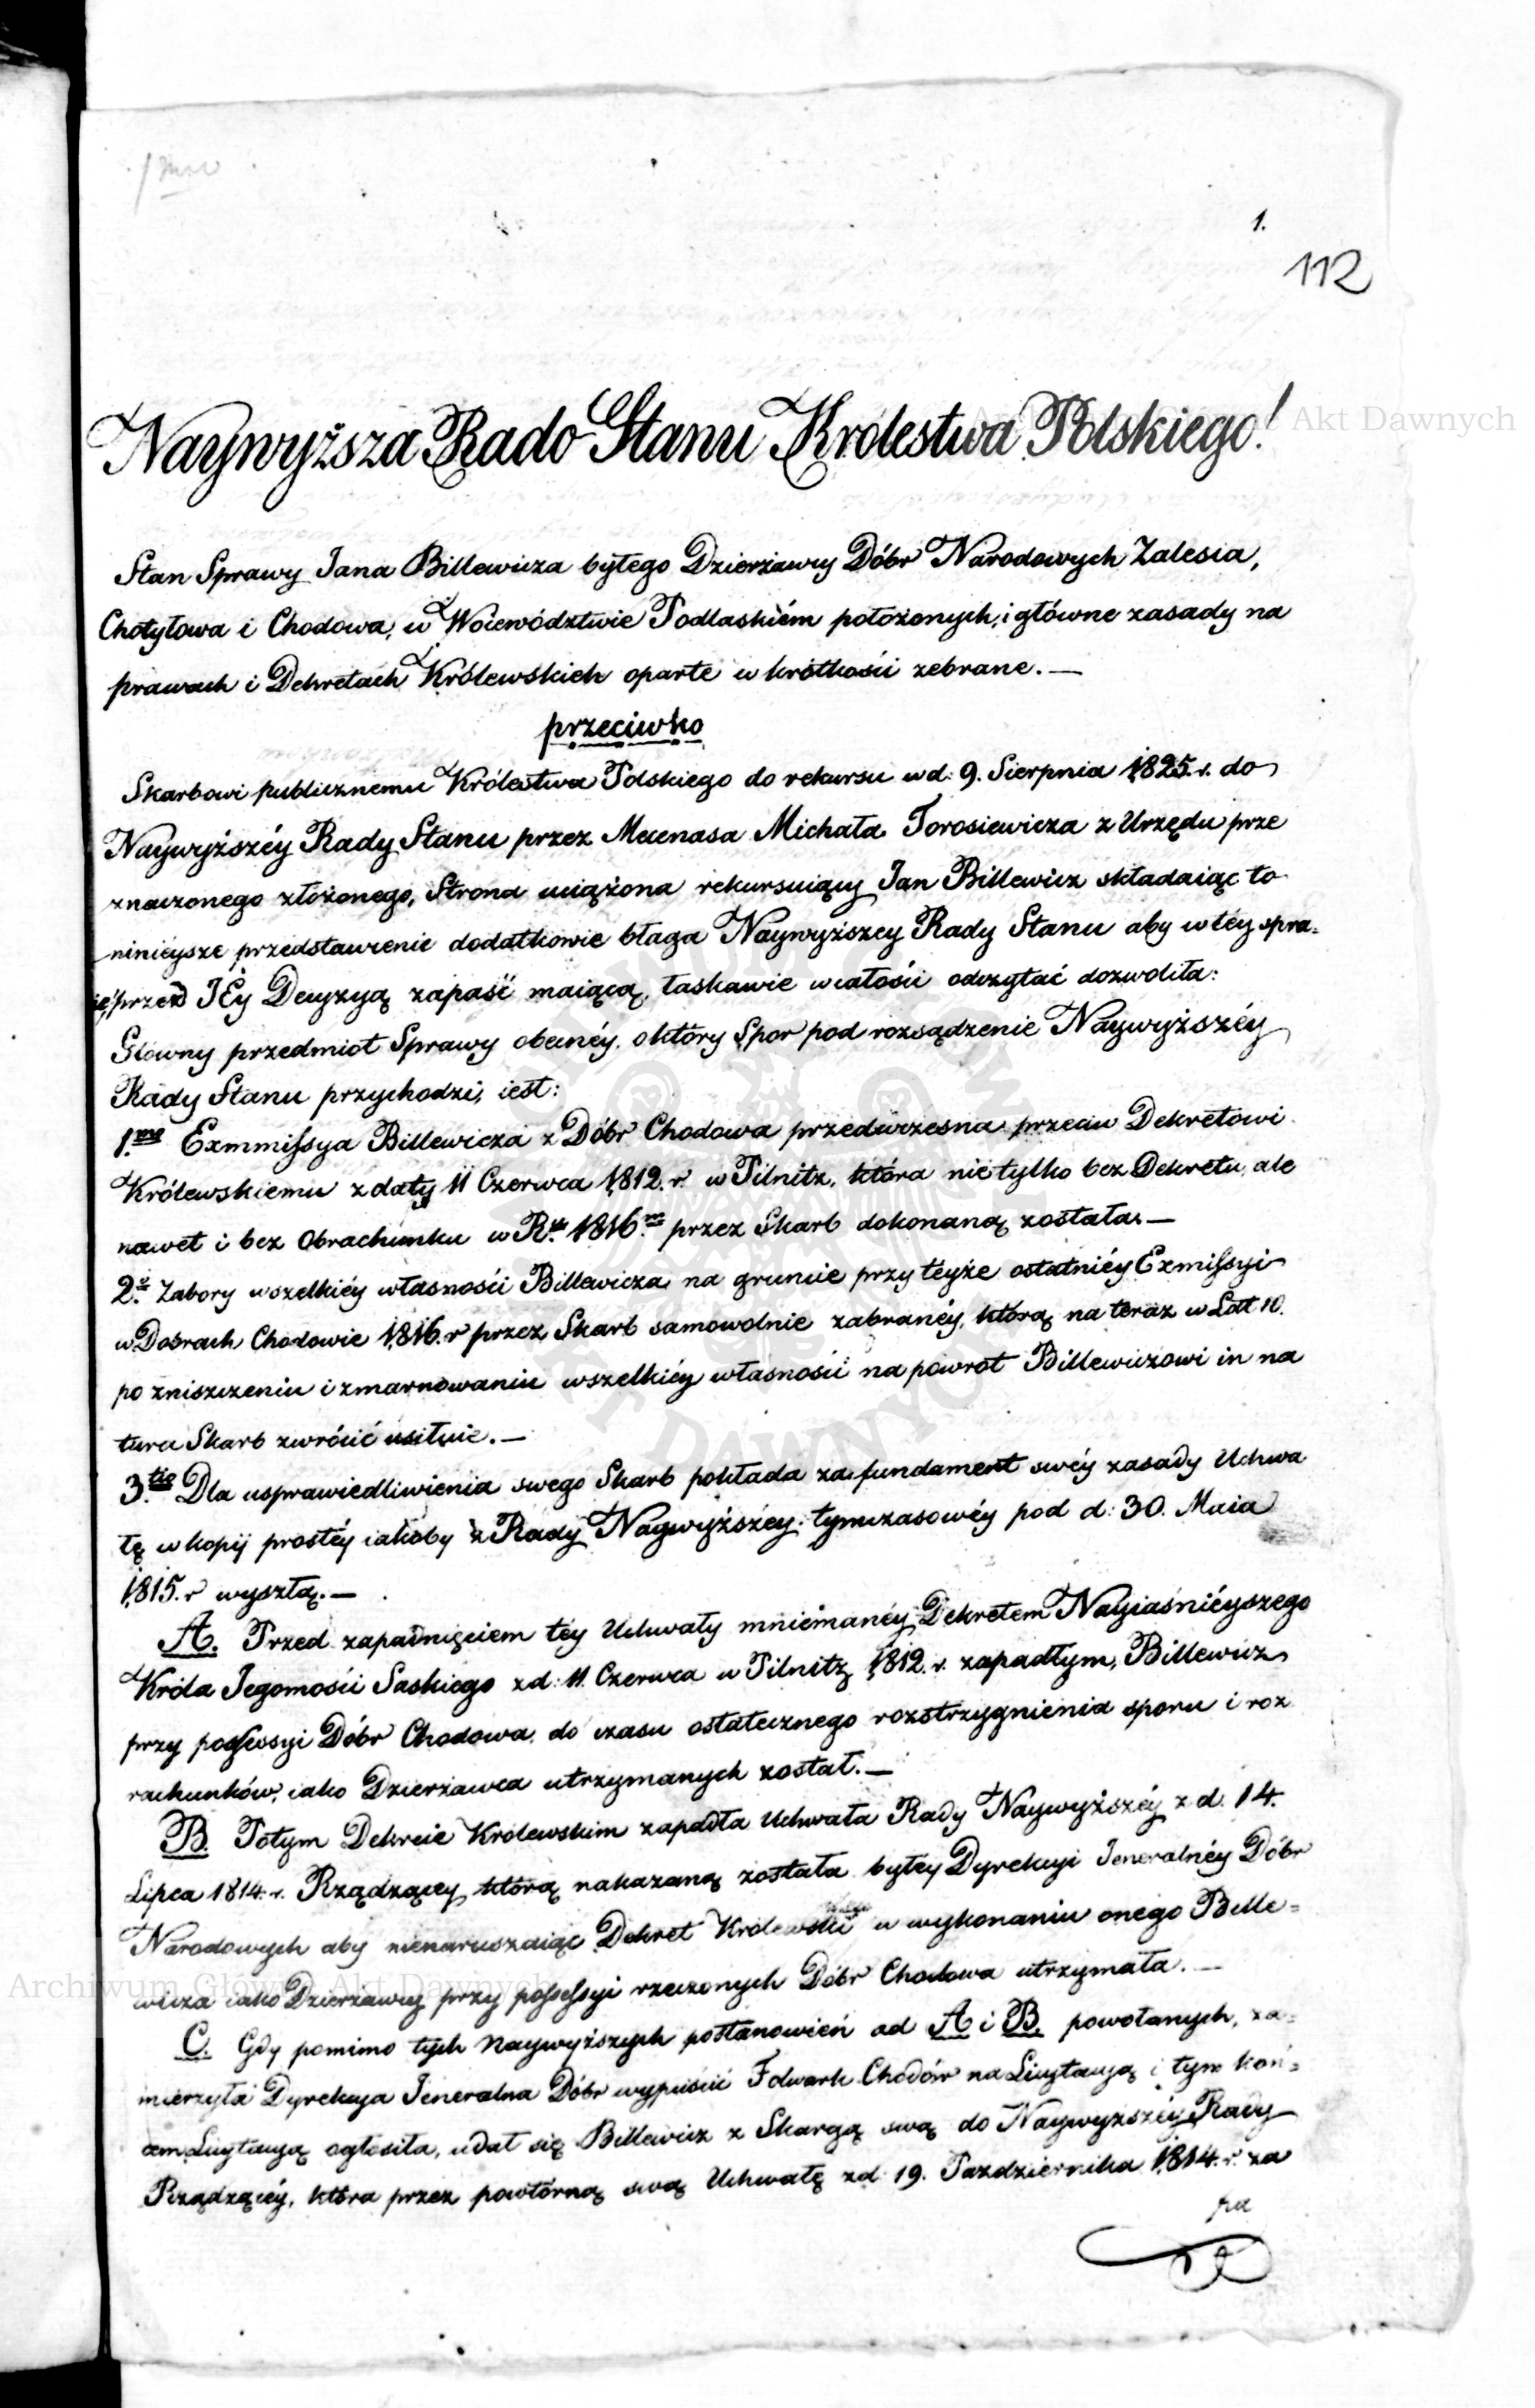 1.
112
Naywyższa Rado Stanu Królestwa Polskiego!
Stan Sprawy Jana Billewicza byłego Dzierżawcy Dóbr Narodowych Zalesia,
Chotyłowa i Chodowa, w Woiewództwie Podlaskiém położonych, i główne zasady na
prawach i Dekretach Królewskich oparte w krótkości zebrane. —
przeciwko
Skarbowi publicznemu Królestwa Polskiego do rekursu w d: 9. Sierpnia 1825. r. do
Naywyższéy Rady Stanu przez Mecenasa Michała Torosiewicza z Urzędu prze
znaczonego złożonego, Strona uciążona rekursuiący Jan Billewicz składaiąc to
ninieysze przedstawienie dodatkowie błaga Naywyższey Rady Stanu aby w téy spra=
ie, przed JEy Decyzyą zapaść maiącą, łaskawie w całości odczytać dozwoliła:
Główny przedmiot Sprawy obecnéy, o który Spor pod rozsądzenie Naywyższéy
Rady Stanu przychodzi, iest:
1.mo Exmmissya Billewicza z Dóbr Chodowa przedwczesna przeciw Dekretowi
Królewskiemu z daty 11 Czerwca 1812. r. w Pilnitz, która nie tylko bez Dekretu, ale
nawet i bez Obrachunku w R.ku 1816.m przez Skarb dokonaną została. —
2.o Zabory wszelkiéy własności Billewicza na gruncie przy teyże ostatniéy Exmissyi
w Dobrach Chodowie 1816. r przez Skarb samowolnie zabranéy, którą na teraz w Lat 10.
po zniszczeniu i zmarnowaniu wszelkiéy własności na powrot Billewiczowi in na
tura Skarb zwrócić usiłuie. —
3.tio Dla usprawiedliwienia swego Skarb pokłada za fundament swéy zasady Uchwa
łę w kopij prostéy iakoby z Rady Naywyższéy tymczasowéy pod d: 30. Maia
1815. r wyszłą. —
A. Przed zapadnięciem téy Uchwały mniemanéy Dekretem Nayiaśniéyszego
Króla Jegomości Saskiego z d: 11. Czerwca w Pilnitz 1812. r. zapadłym, Billewicz
przy possessyi Dóbr Chodowa, do czasu ostatecznego rozstrzygnienia sporu i roz
rachunków, iako Dzierżawca utrzymanych został. —
B. Potym Dekrecie Krolewskim zapadła Uchwała Rady Naywyższéy z d. 14.
Lipca 1814. r. Rządzącey, którą nakazaną została byłey Dyrekcyi Jeneralnéy Dóbr
Narodowych aby nienaruszaiąc Dekret Królewski w wykonaniu onego Bille=
wicza iako Dzierżawcę przy possessyi rzeczonych Dóbr Chodowa utrzymała. —
C. Gdy pomimo tych Naywyższych postanowień ad A i B. powołanych, za=
mierzyła Dyrekcya Jeneralna Dóbr wypuścić Folwark Chodów na Licytacyą i tym koń=
cem Licytacyą ogłosiła, udał się Billewicz z Skargą swą do Naywyższéy Rady
Rządzącéy, która przez powtórną swą Uchwałę z d: 19. Pazdziernika 1814. r. za
pa